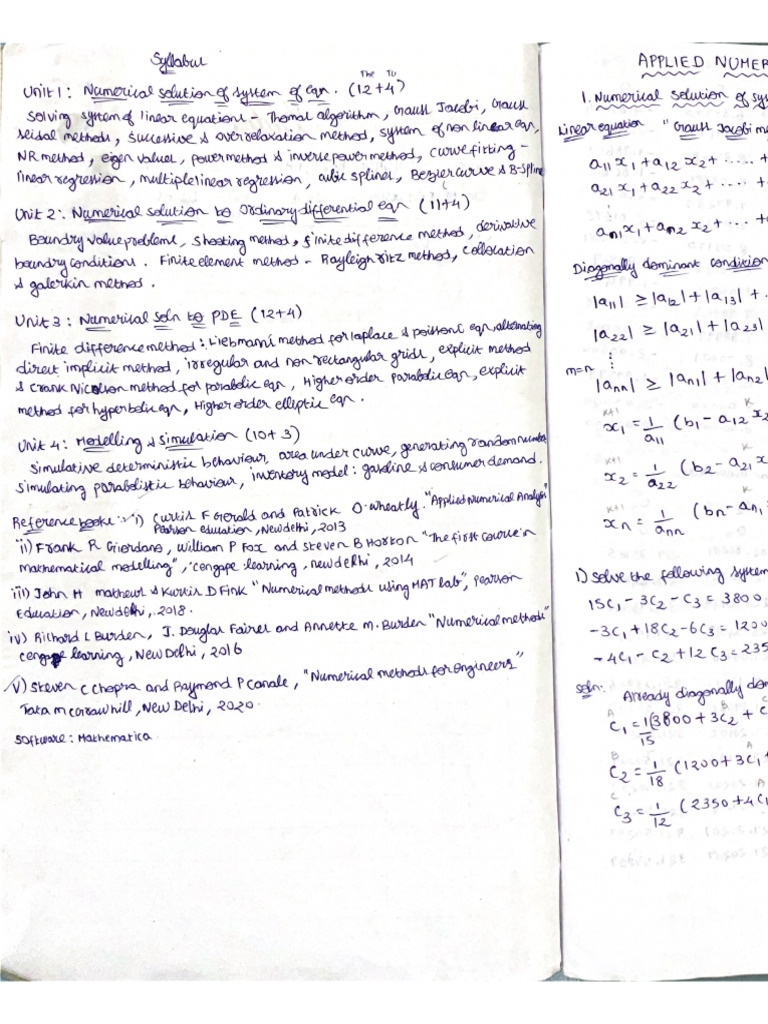 Syllabus
The Tu
Unit 1: Numerical solution of system of eqn. (12+4)
Solving system of linear equations - Thomal algorithm, Gauss Jacobi, Gauss
Seidal methods, successive & overrelaxation method, system of non linear eqn,
NR method, eigen values, power method & inverse power method, curve fitting -
linear regression, multiple linear regression, cubic splines, Bezier curve & B-Spline
Unit 2: Numerical solution to Ordinary differential eqn (11+4)
Boundry value problems, shooting method, finite difference method, derivative
boundry conditions. Finite element method - Rayleigh ritz method, collocation
& galerkin method.
Unit 3: Numerical soln to PDE (12+4)
Finite difference method: Liebmann's method for laplace & poisson's eqn, alternating
direct implicit method, irregular and non rectangular grids, explicit method
& crank Nicolson method for parabolic eqn, Higher order parabolic eqn, explicit
method for hyperbolic eqn, Higher order elliptic eqn.
Unit 4: Modelling & simulation (10+3)
Simulative deterministic behaviour, area under curve, generating random number
simulating parabolistic behaviour, inventory model: gasoline & consumer demand.
Reference books: i) Curtis F Gerald and Patrick O. wheatly. "Applied Numerical Analysis"
Pearson education, New delhi, 2013
ii) Frank R Giordano, William P Fox and Steven B Horton "The first course in
mathematical modelling", cengape learning, new delhi, 2014
iii) John H mathews & Kurtis D Fink "Numerical methods using MAT Lab", Pearson
Education, New delhi, 2018.
iv) Richard L Burden, J. Douglas Faires and Annette M. Burden "Numerical methods"
cengage learning, New Delhi, 2016
v) Steven C Chopra and Raymond P Canale, "Numerical methods for engineers"
Tata mcgraw hill, New Delhi, 2020.
Software: Mathematica
APPLIED NUMER
1. Numerical Solution of sy
Linear equation "Gauss Jacobi m
a11x1 + a12x2 + .... +
a21x1 + a22x2 + .... +
⋮
an1x1 + an2x2 + .... +
Diagonally dominant condition
|a11| ≥ |a12| + |a13| + .
|a22| ≥ |a21| + |a23|
⋮
m=n
|ann| ≥ |an1| + |an2|
K+1 K
x1 = 1/a11 (b1 - a12 x2
K+1 K
x2 = 1/a22 (b2 - a21 x
K+1
xn = 1/ann (bn - an1
1) Solve the following system
15C1 - 3C2 - C3 = 3800
-3C1 + 18C2 - 6C3 = 1200
-4C1 - C2 + 12C3 = 235
Soln. Already diagonally dom
A B C
C1 = 1/15 (3800 + 3C2 + C
B A
C2 = 1/18 (1200 + 3C1 +
C A
C3 = 1/12 (2350 + 4C1